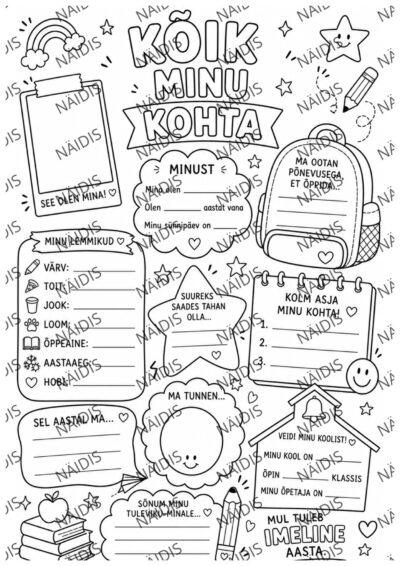 KÕIK
MINU
KOHTA
SEE OLEN MINA!
MINUST
Mina olen
Olen aastat vana
Minu sünnipäev on
MA OOTAN
PÕNEVUSEGA,
ET ÕPPIDA...
MINU LEMMIKUD
VÄRV:
TOIT:
JOOK:
LOOM:
ÕPPEAINE:
AASTAAEG:
HOBI:
SUUREKS
SAADES TAHAN
OLLA...
KOLM ASJA
MINU KOHTA!
1.
2.
3.
SEL AASTAL MA...
MA TUNNEN...
VEIDI MINU KOOLIST!
MINU KOOL ON
ÕPIN KLASSIS
MINU ÕPETAJA ON
SÕNUM MINU
TULEVIKU-MINALE...
MUL TULEB
IMELINE
AASTA
NÄIDIS